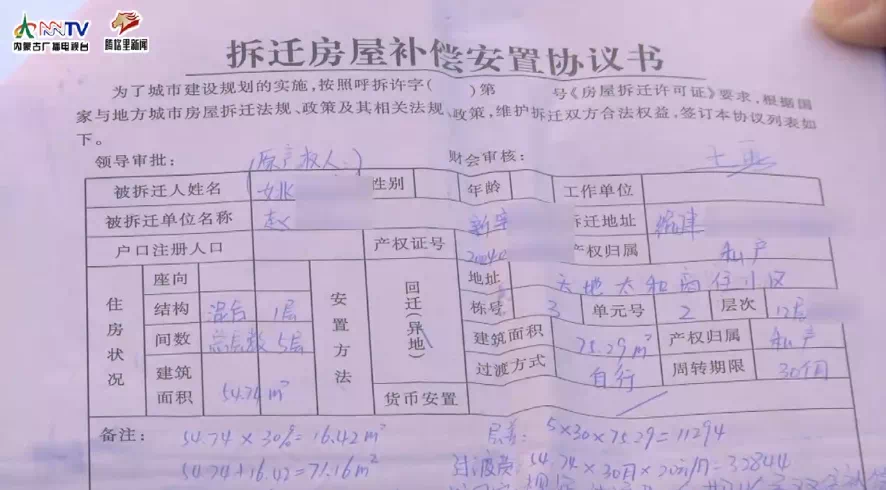 NMTV
内蒙古广播电视台
腾格里新闻
拆迁房屋补偿安置协议书
为了城市建设规划的实施，按照呼拆许字( )第 号《房屋拆迁许可证》要求，根据国
家与地方城市房屋拆迁法规、政策及其相关法规、政策，维护拆迁双方合法权益，签订本协议列表如
下。
领导审批： (原产权人:) 财会审核：
被拆迁人姓名 姚 性别 年龄 工作单位
被拆迁单位名称 赵 新字 拆迁地址
户口注册人口 产权证号 产权归属 私户
住房状况 座向 安置方法 回迁(异地) 地址 天地太和高层小区
结构 混合 1层 栋号 3 单元号 2 层次 12层
间数 总层数 5层 建筑面积 75.29m² 产权归属 私户
建筑面积 54.74m² 过渡方式 自行 周转期限 30个月
货币安置
备注： 54.74×30%=16.42m² 层差：5×30×75.29=11294
54.74+16.42=71.16m² 过渡费：54.74×30月×20元/月=32844